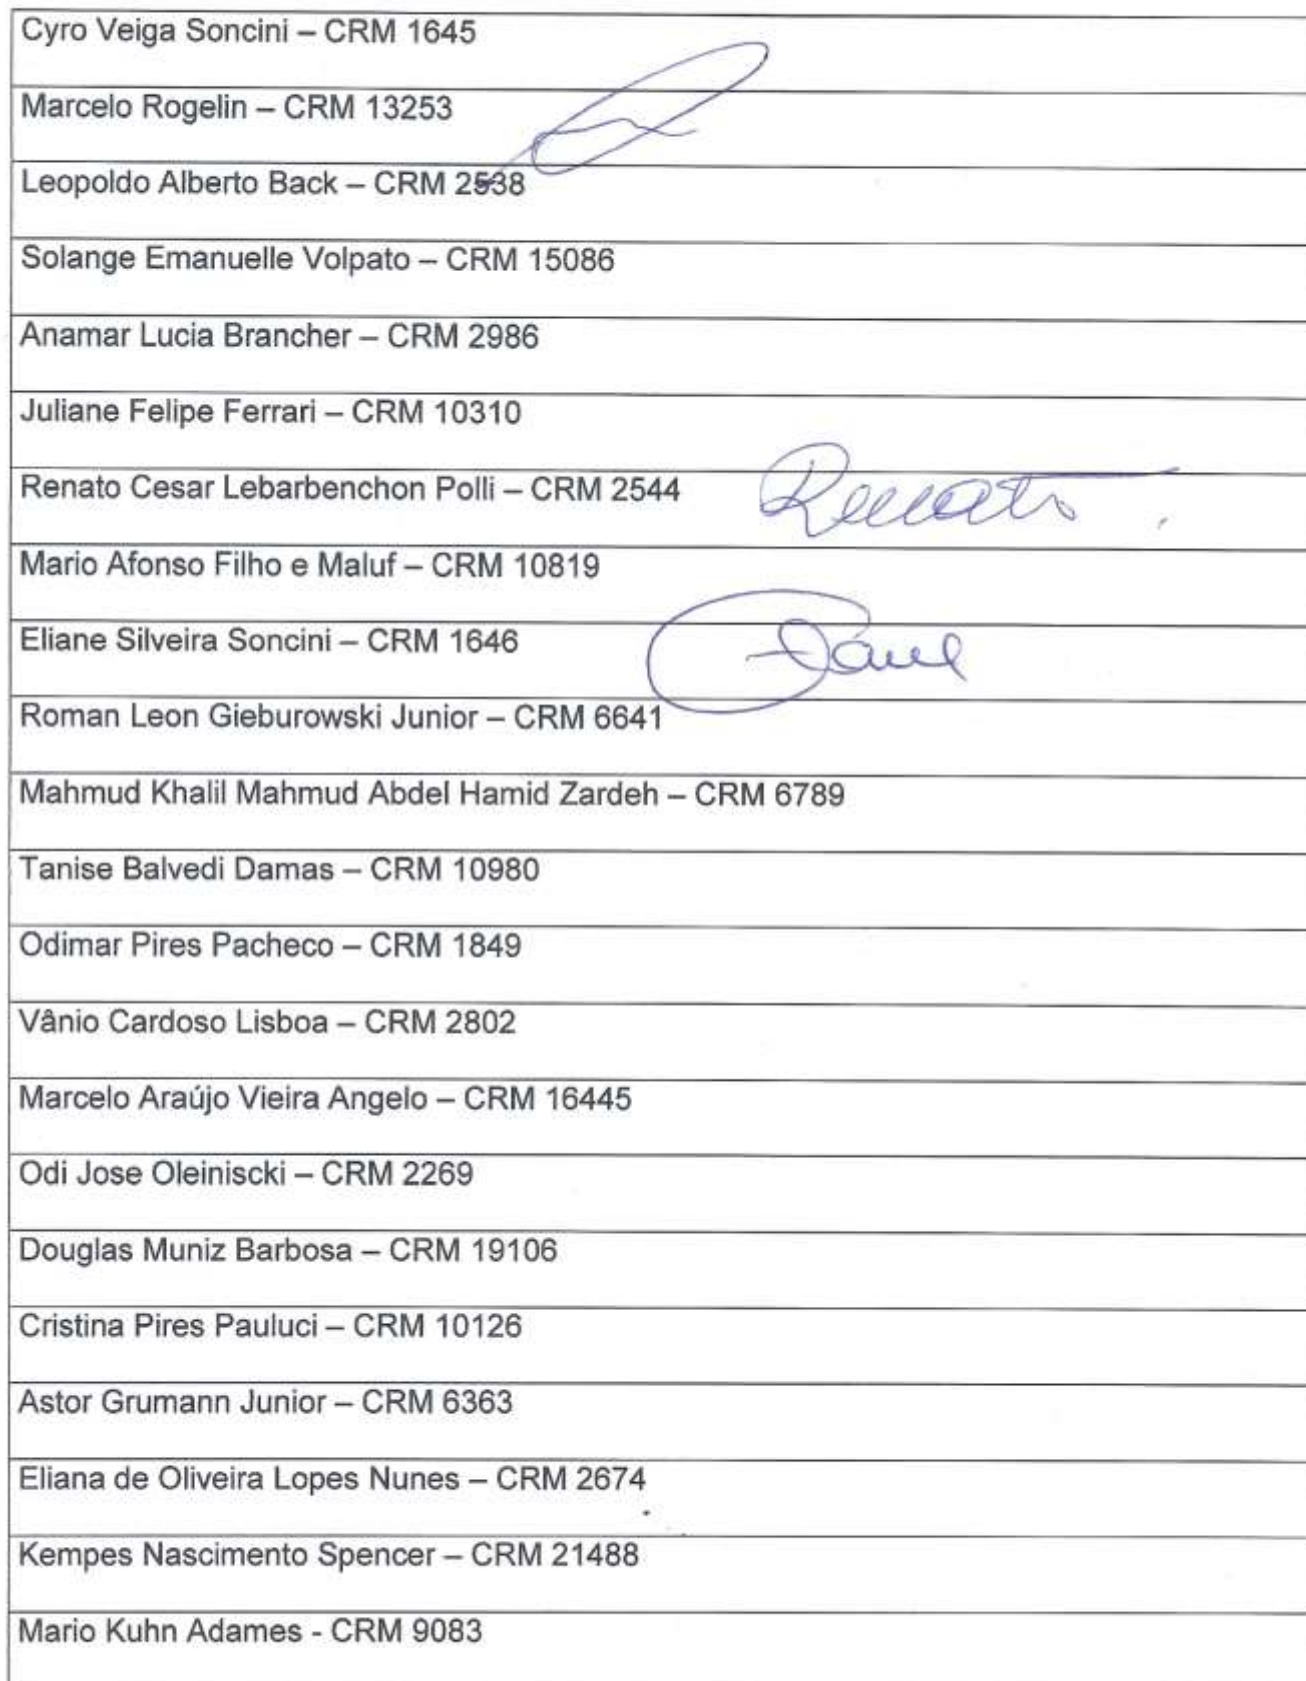 Cyro Veiga Soncini – CRM 1645
Marcelo Rogelin – CRM 13253
Leopoldo Alberto Back – CRM 2538
Solange Emanuelle Volpato – CRM 15086
Anamar Lucia Brancher – CRM 2986
Juliane Felipe Ferrari – CRM 10310
Renato Cesar Lebarbenchon Polli – CRM 2544 Renato
Mario Afonso Filho e Maluf – CRM 10819
Eliane Silveira Soncini – CRM 1646
Roman Leon Gieburowski Junior – CRM 6641
Mahmud Khalil Mahmud Abdel Hamid Zardeh – CRM 6789
Tanise Balvedi Damas – CRM 10980
Odimar Pires Pacheco – CRM 1849
Vânio Cardoso Lisboa – CRM 2802
Marcelo Araújo Vieira Angelo – CRM 16445
Odi Jose Oleiniscki – CRM 2269
Douglas Muniz Barbosa – CRM 19106
Cristina Pires Pauluci – CRM 10126
Astor Grumann Junior – CRM 6363
Eliana de Oliveira Lopes Nunes – CRM 2674
Kempes Nascimento Spencer – CRM 21488
Mario Kuhn Adames - CRM 9083